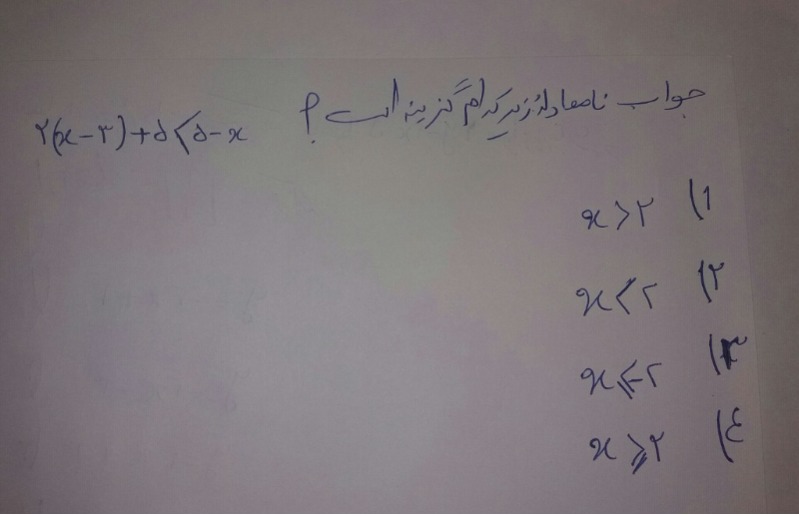 جواب نامعادلهٔ زیر کدام گزینه است ؟
۲(x-۳)+۵<۵-x
۱) x>۲
۲) x<۲
۳) x<-۲
۴) x≥۲